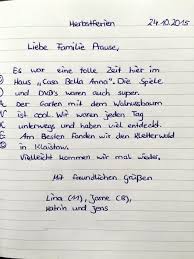 Herbstferien 24.10.2015
Liebe Familie Prause,
Es war eine tolle Zeit hier im
Haus „Casa Bella Anna". Die Spiele
und DVD's waren auch super.
Der Garten mit dem Walnussbaum
ist cool. Wir waren jeden Tag
unterwegs und haben viel entdeckt.
Am Besten fanden wir den Kletterwald
in Klaistow.
Vielleicht kommen wir mal wieder.
Mit freundlichen Grüßen
Lina (11), Jarne (8),
Katrin und Jens